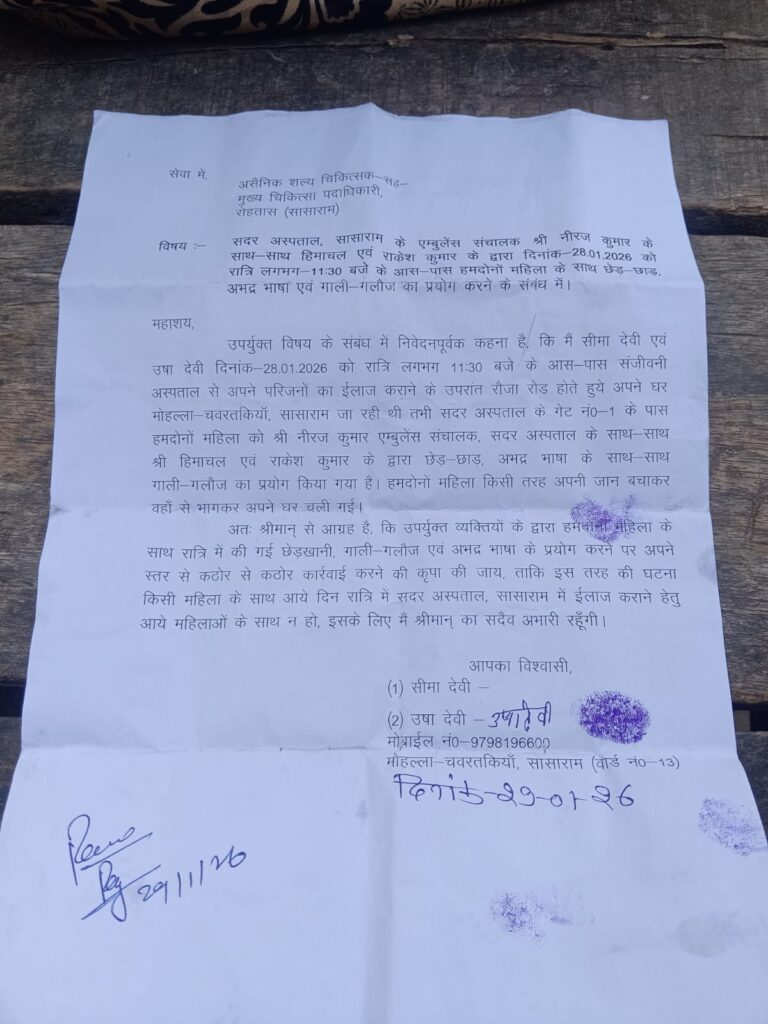 सेवा में,
असैनिक शल्य चिकित्सक–सह–
मुख्य चिकित्सा पदाधिकारी,
रोहतास (सासाराम)
विषय :– सदर अस्पताल, सासाराम के एम्बुलेंस संचालक श्री नीरज कुमार के
साथ–साथ हिमाचल एवं राकेश कुमार के द्वारा दिनांक–28.01.2026 को
रात्रि लगभग–11:30 बजे के आस–पास हमदोनों महिला के साथ छेड़–छाड़,
अभद्र भाषा एवं गाली–गलौज का प्रयोग करने के संबंध में।
महाशय,
उपर्युक्त विषय के संबंध में निवेदनपूर्वक कहना है, कि मैं सीमा देवी एवं
उषा देवी दिनांक–28.01.2026 को रात्रि लगभग 11:30 बजे के आस–पास संजीवनी
अस्पताल से अपने परिजनों का ईलाज कराने के उपरांत रौजा रोड़ होते हुये अपने घर
मोहल्ला–चवरतकियाँ, सासाराम जा रही थी तभी सदर अस्पताल के गेट नं0–1 के पास
हमदोनों महिला को श्री नीरज कुमार एम्बुलेंस संचालक, सदर अस्पताल के साथ–साथ
श्री हिमाचल एवं राकेश कुमार के द्वारा छेड़–छाड़, अभद्र भाषा के साथ–साथ
गाली–गलौज का प्रयोग किया गया है। हमदोनों महिला किसी तरह अपनी जान बचाकर
वहाँ से भागकर अपने घर चली गई।
अतः श्रीमान् से आग्रह है, कि उपर्युक्त व्यक्तियों के द्वारा हमदोनों महिला के
साथ रात्रि में की गई छेड़खानी, गाली–गलौज एवं अभद्र भाषा के प्रयोग करने पर अपने
स्तर से कठोर से कठोर कार्रवाई करने की कृपा की जाय, ताकि इस तरह की घटना
किसी महिला के साथ आये दिन रात्रि में सदर अस्पताल, सासाराम में ईलाज कराने हेतु
आये महिलाओं के साथ न हो, इसके लिए मैं श्रीमान् का सदैव अभारी रहूँगी।
आपका विश्वासी,
(1) सीमा देवी –
(2) उषा देवी – उषा देवी
मोबाईल नं0–9798196600
मोहल्ला–चवरतकियाँ, सासाराम (वार्ड नं0–13)
दिनांक–29-01-26
29/1/26